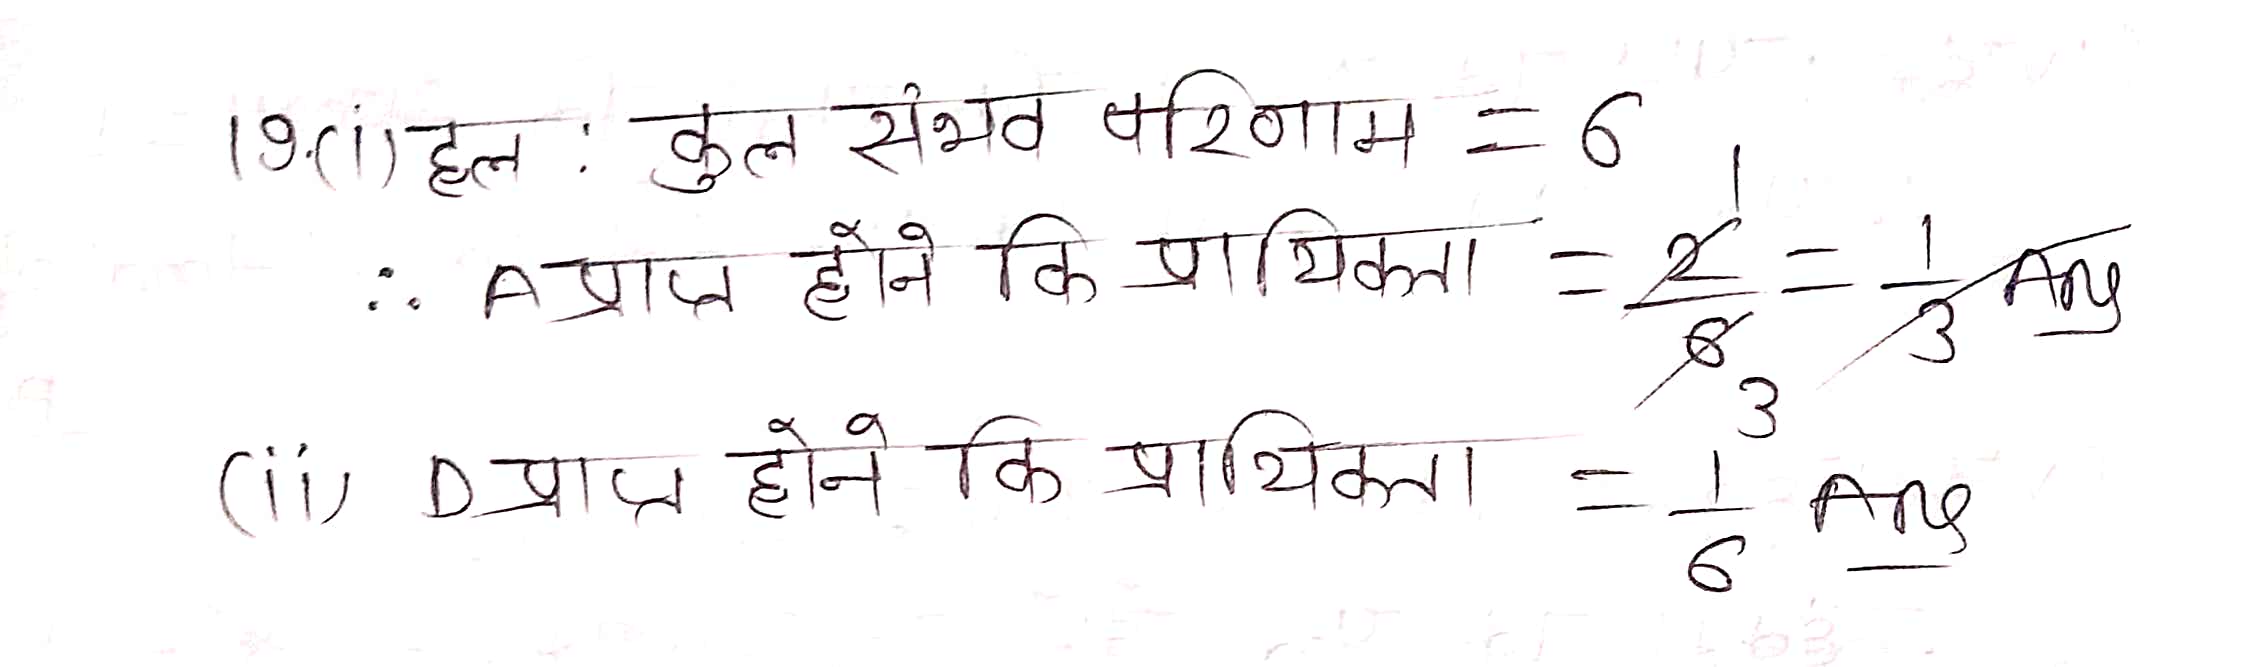 19.(i) हल : कुल संभव परिणाम = 6
∴ A प्राप्त होंने कि प्रायिकता = 2/6 = 1/3 Ans
(ii) D प्राप्त होंने कि प्रायिकता = 1/6 Ans